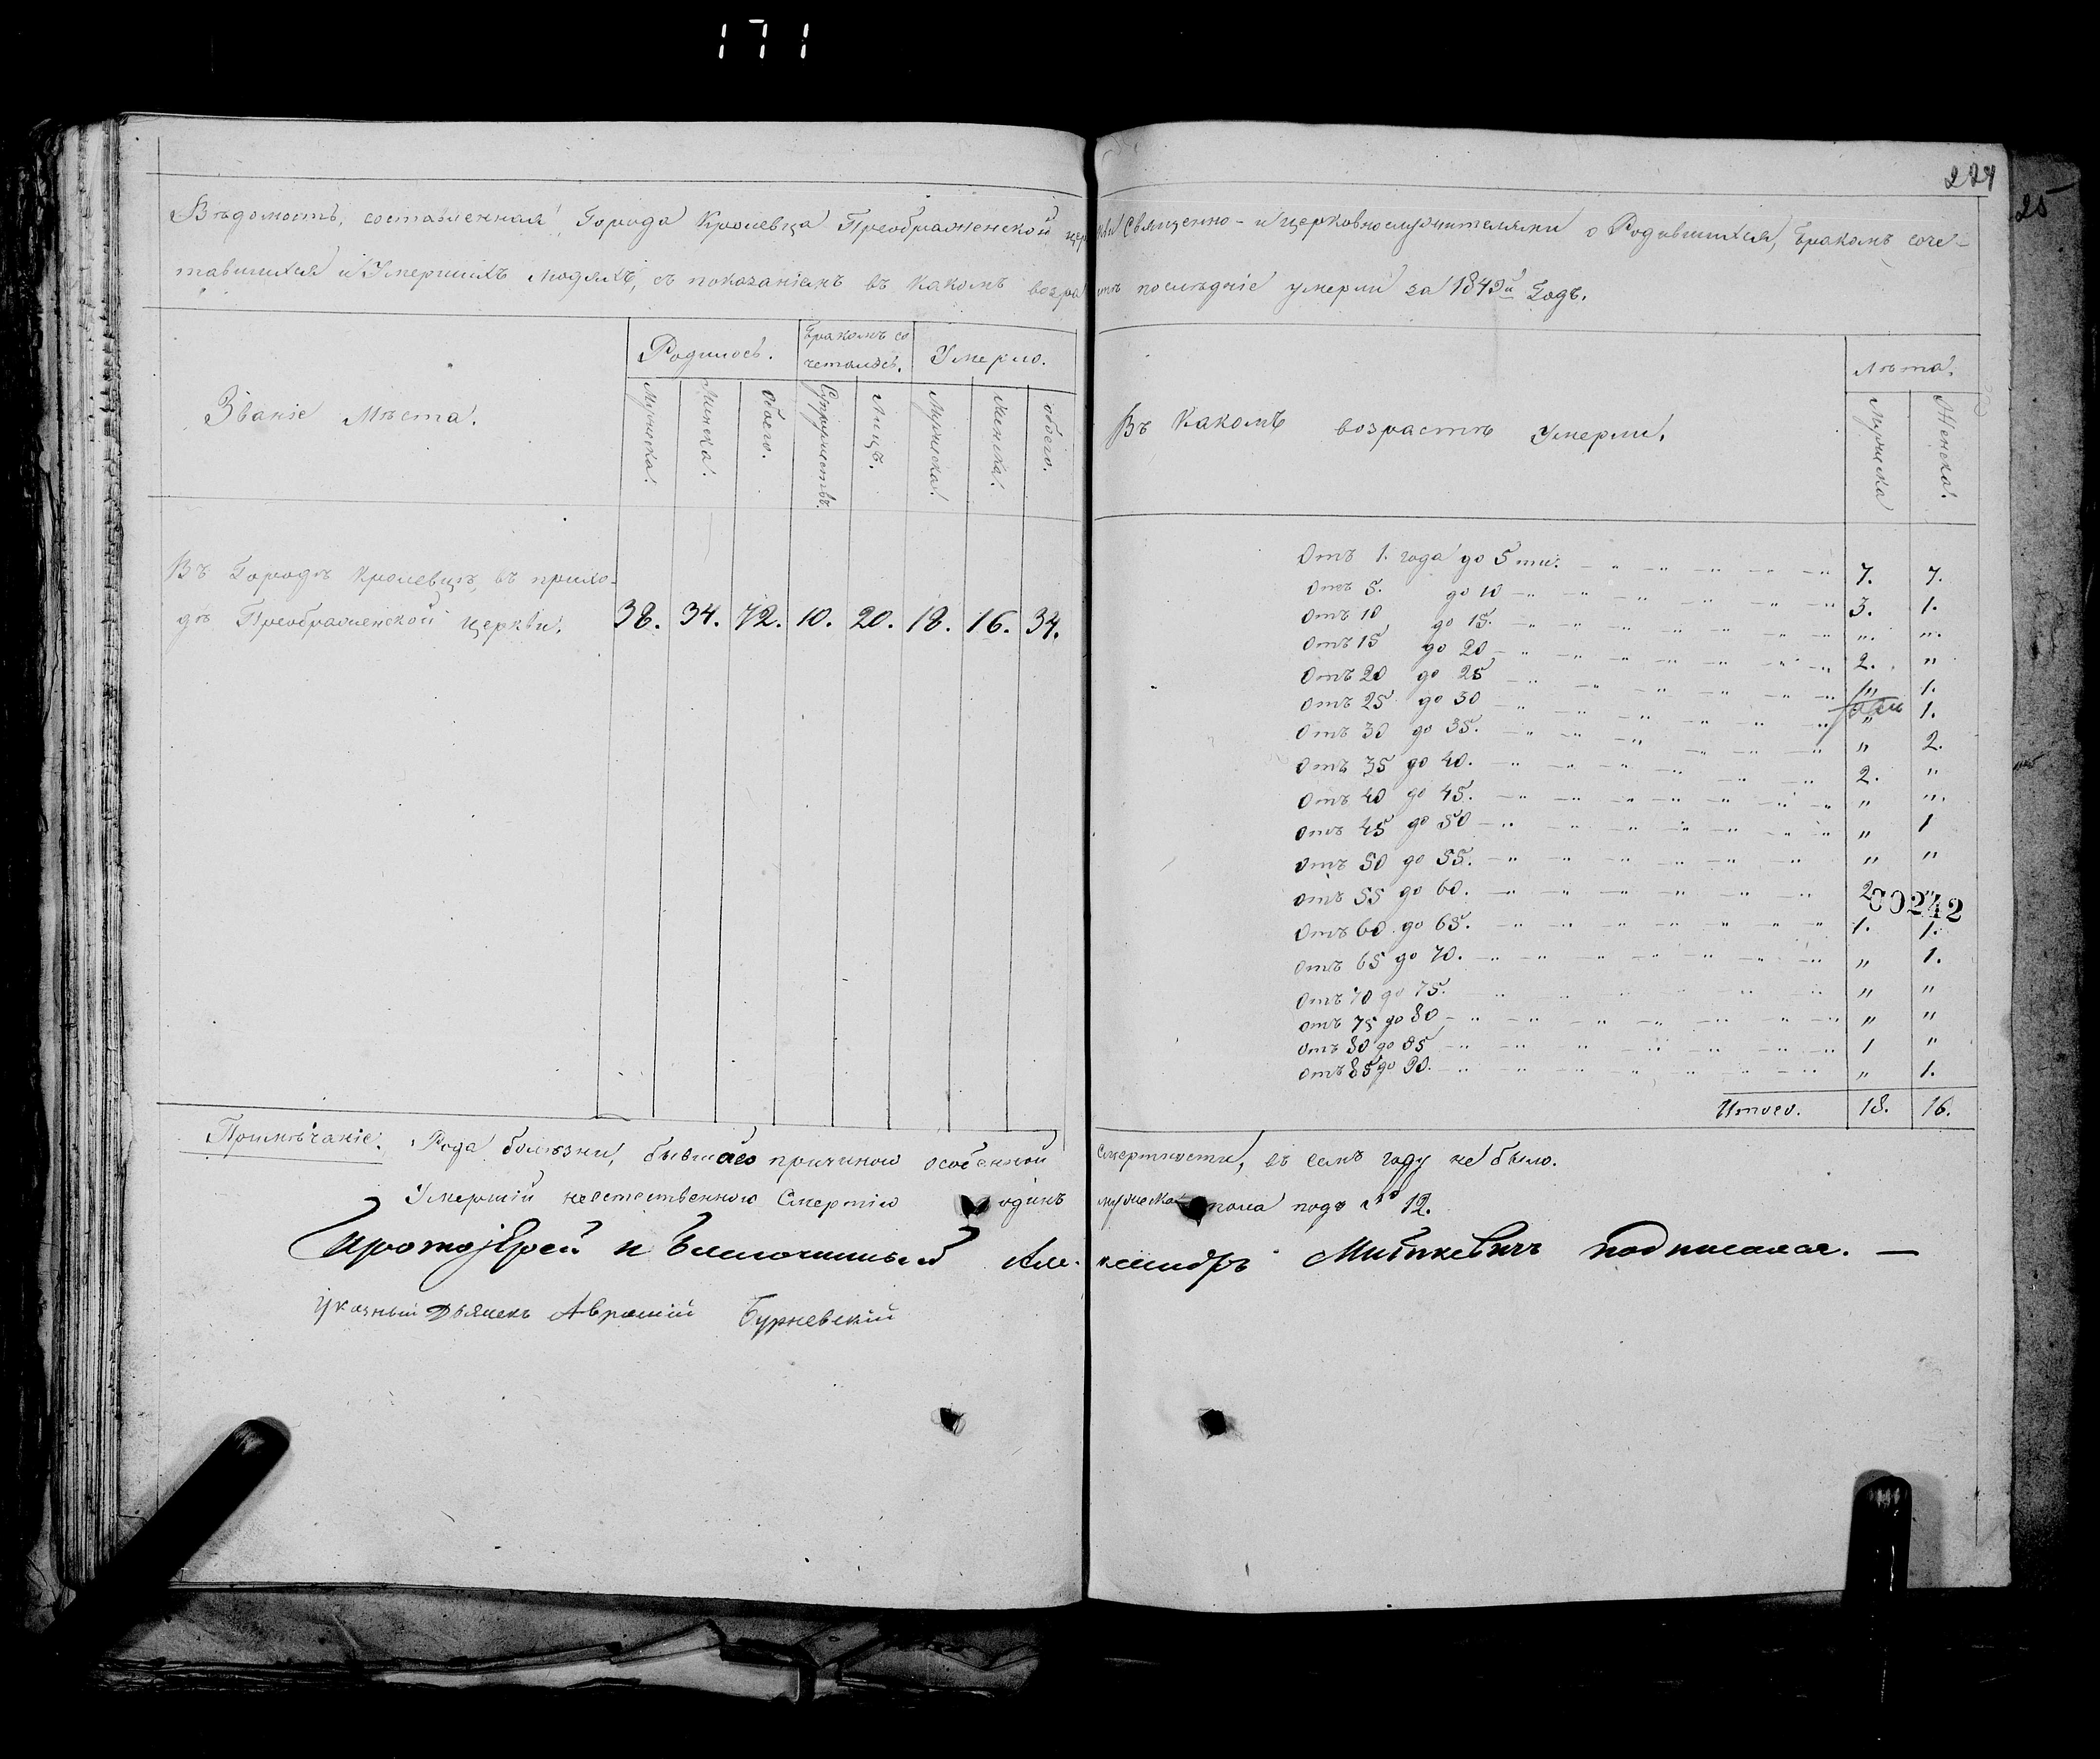 171
25
Вѣдомость, составленная Города Кролевца Преображенской церкви Священно- и церковнослужителями о Родившихся, бракомъ соче-
тавшихся и Умершихъ людяхъ, съ показаніемъ въ какомъ возрастѣ послѣдніе умерли за 1842й Годъ.
Званіе Мѣста.
Родилось. Бракомъ со Умерло.
четалось.
Мужеска. Женска. Обоего. Супружествъ. Лицъ. Мужеска. Женска. обоего.
Въ Городѣ Кролевцѣ, въ прихо-
дѣ Преображенской церкви. 38. 34. 72. 10. 20. 18. 16. 34.
Въ какомъ возрастѣ Умерли. Лѣта.
Мужеска Женска.
Отъ 1. года до 5 ти. 7. 7.
Отъ 5. до 10 3. 1.
Отъ 10 до 15. " "
Отъ 15 до 20 2. "
Отъ 20 до 25 " 1.
Отъ 25 до 30 " 1.
Отъ 30 до 35. " 2.
Отъ 35 до 40. 2. "
Отъ 40 до 45. " "
Отъ 45 до 50 " 1
Отъ 50 до 55. " "
отъ 55 до 60. 2
00242
Отъ 60 до 65. 1. 1.
отъ 65 до 70. " 1.
Отъ 70 до 75. " "
отъ 75 до 80 " "
отъ 80 до 85 1 "
отъ 85 до 90. " 1.
Итого. 18. 16.
Примѣчаніе. Рода болѣзни, бывшаго причиною особенной смертности, въ семъ году не было.
Умершій неестественною Смертію одинъ мужеска пола подъ № 12.
Протоіерей и Благочинный Александръ Миткевичъ подписался. —
Указный Дьячекъ Аврамій Бурневскій